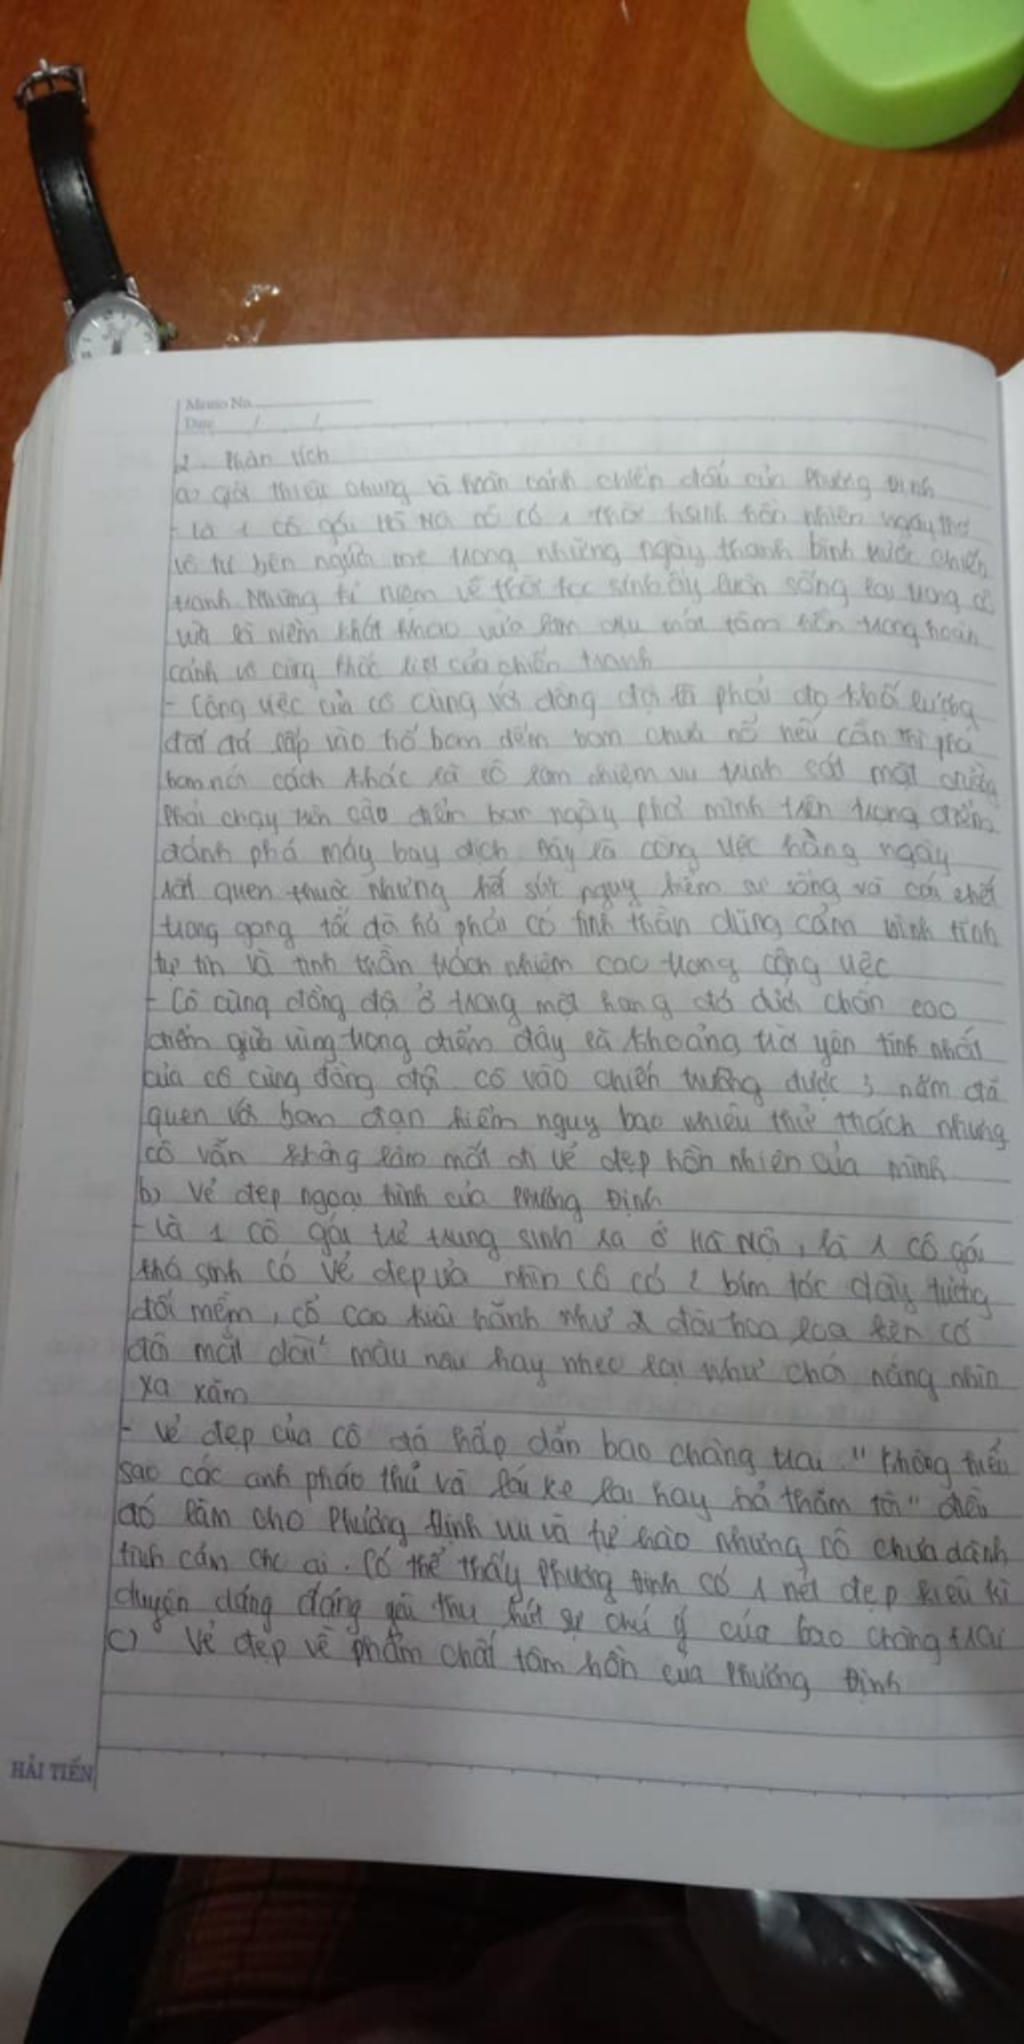 Memo No.
Date / /
2. Phân tích
a) Giới thiệu chung và hoàn cảnh chiến đấu của Phương Định
- Là 1 cô gái Hà Nội cô có 1 thời hồn nhiên ngây thơ
vô tư bên người mẹ trong những ngày thanh bình trước chiến
tranh Những kỉ niệm về thời học sinh ấy luôn sống lại trong cô
vừa là niềm khát khao vừa làm dịu mát tâm hồn trong hoàn
cảnh vô cùng khốc liệt của chiến tranh
- Công việc của cô cùng với đồng đội là phải đo khối lượng
đất đá lấp vào hố bom đếm bom chưa nổ nếu cần thì phá
bom nói cách khác là cô làm nhiệm vụ trinh sát mặt đường
Phải chạy trên cao điểm ban ngày phơi mình trên trọng điểm
đánh phá máy bay địch Đây là công việc hằng ngày
rất quen thuộc nhưng hết sức nguy hiểm sự sống và cái chết
trong gang tấc đòi hỏi phải có tinh thần dũng cảm bình tĩnh
tự tin và tinh thần trách nhiệm cao trong công việc
- Cô cùng đồng đội ở trong một hang đá dưới chân cao
điểm giữa vùng trọng điểm đây là khoảng trời yên tĩnh nhất
của cô cùng đồng đội cô vào chiến trường được 3 năm đã
quen với bom đạn hiểm nguy bao nhiêu thử thách nhưng
cô vẫn không làm mất đi vẻ đẹp hồn nhiên của mình
b) Vẻ đẹp ngoại hình của Phương Định
- Là 1 cô gái trẻ trung sinh ra ở Hà Nội, là 1 cô gái
khá xinh có vẻ đẹp nhìn cô có 2 bím tóc dày tương
đối mềm, cổ cao kiêu hãnh như đài hoa loa kèn có
đôi mắt dài màu nâu hay nheo lại như chói nắng nhìn
xa xăm
- Vẻ đẹp của cô đã hấp dẫn bao chàng trai "không hiểu
sao các anh pháo thủ và lái xe lại hay hỏi thăm tôi" điều
đó làm cho Phương Định vui và tự hào nhưng cô chưa dành
tình cảm cho ai. Có thể thấy Phương Định có 1 nét đẹp kiêu kì
duyên dáng đáng yêu thu hút sự chú ý của bao chàng trai
c) Vẻ đẹp về phẩm chất tâm hồn của Phương Định
HẢI TIẾN